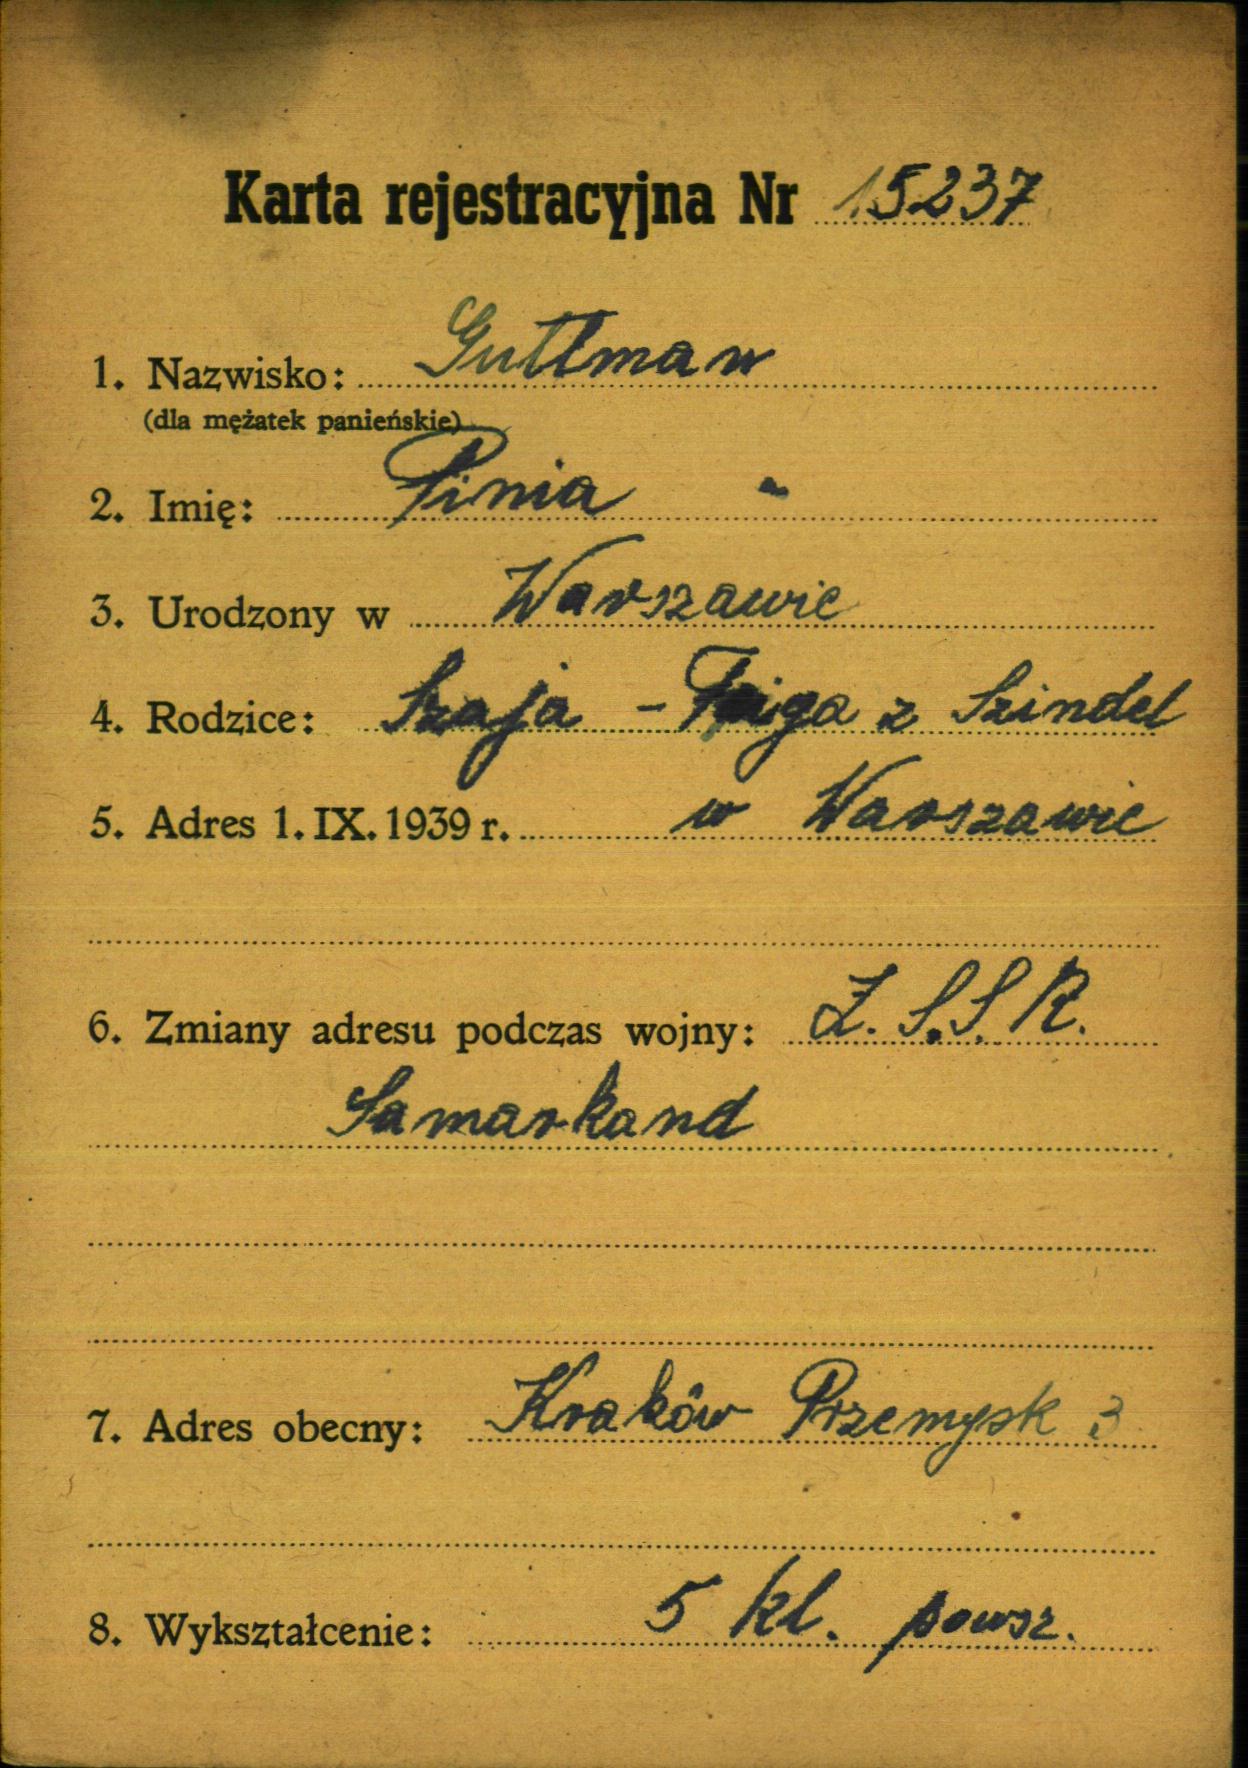 Karta rejestracyjna Nr 15237
1. Nazwisko: Guttman
(dla mężatek panieńskie)
2. Imię: Pinia -
3. Urodzony w Warszawie
4. Rodzice: Szaja - Fajga z Szindel
5. Adres 1. IX. 1939 r. w Warszawie
6. Zmiany adresu podczas wojny: Z. S. S. R.
Samarkand
7. Adres obecny: Kraków Przemysk 3
8. Wykształcenie: 5 kl. powsz.